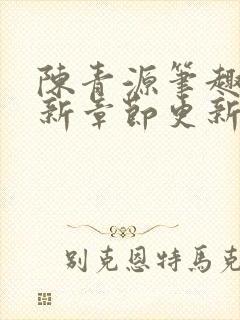 陳青源筆趣
新章節更新
別克恩特馬克